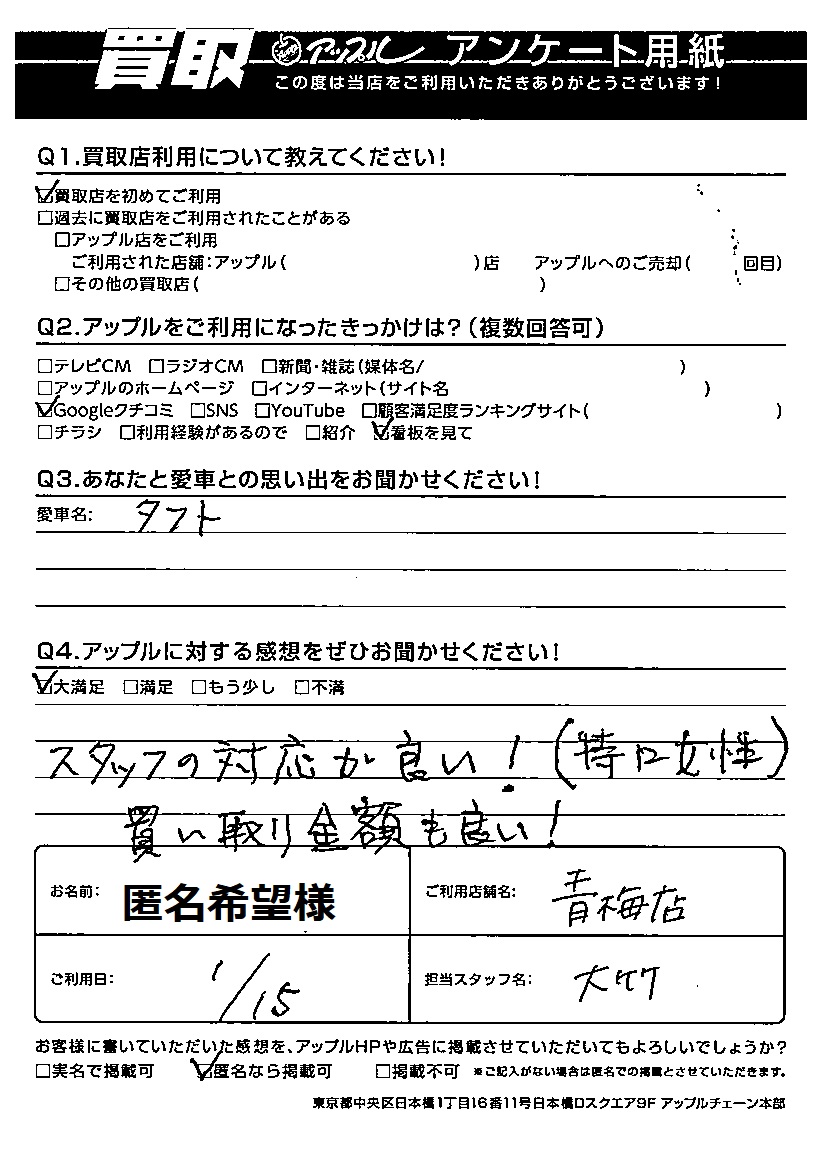 買取 アップル アンケート用紙
この度は当店をご利用いただきありがとうございます!
Q1.買取店利用について教えてください!
☑買取店を初めてご利用
□過去に買取店をご利用されたことがある
□アップル店をご利用
ご利用された店舗:アップル( )店 アップルへのご売却( 回目)
□その他の買取店( )
Q2.アップルをご利用になったきっかけは?(複数回答可)
□テレビCM □ラジオCM □新聞・雑誌(媒体名/ )
□アップルのホームページ □インターネット(サイト名 )
☑Googleクチコミ □SNS □YouTube □顧客満足度ランキングサイト( )
□チラシ □利用経験があるので □紹介 ☑看板を見て
Q3.あなたと愛車との思い出をお聞かせください!
愛車名: タフト
Q4.アップルに対する感想をぜひお聞かせください!
☑大満足 □満足 □もう少し □不満
スタッフの対応が良い!(特に女性)
買い取り金額も良い!
お名前: 匿名希望様 ご利用店舗名: 青梅店
ご利用日: 1/15 担当スタッフ名: 大竹
お客様に書いていただいた感想を、アップルHPや広告に掲載させていただいてもよろしいでしょうか?
□実名で掲載可 ☑匿名なら掲載可 □掲載不可 ※ご記入がない場合は匿名での掲載とさせていただきます。
東京都中央区日本橋1丁目16番11号日本橋Dスクエア9F アップルチェーン本部